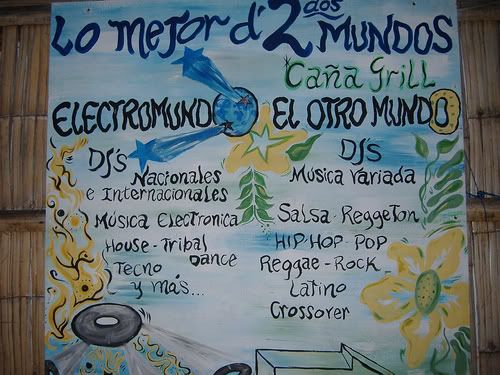 Lo Mejor d' 2 dos Mundos
Caña Grill
ELECTROMUNDO
DJ's
Nacionales
e Internacionales
Música Electronica
House - Tribal
Dance
Tecno
y más...
EL OTRO MUNDO
DJ's
Música Variada
Salsa - Reggeton
HIP-HOP - POP
Reggae - Rock
Latino
Crossover